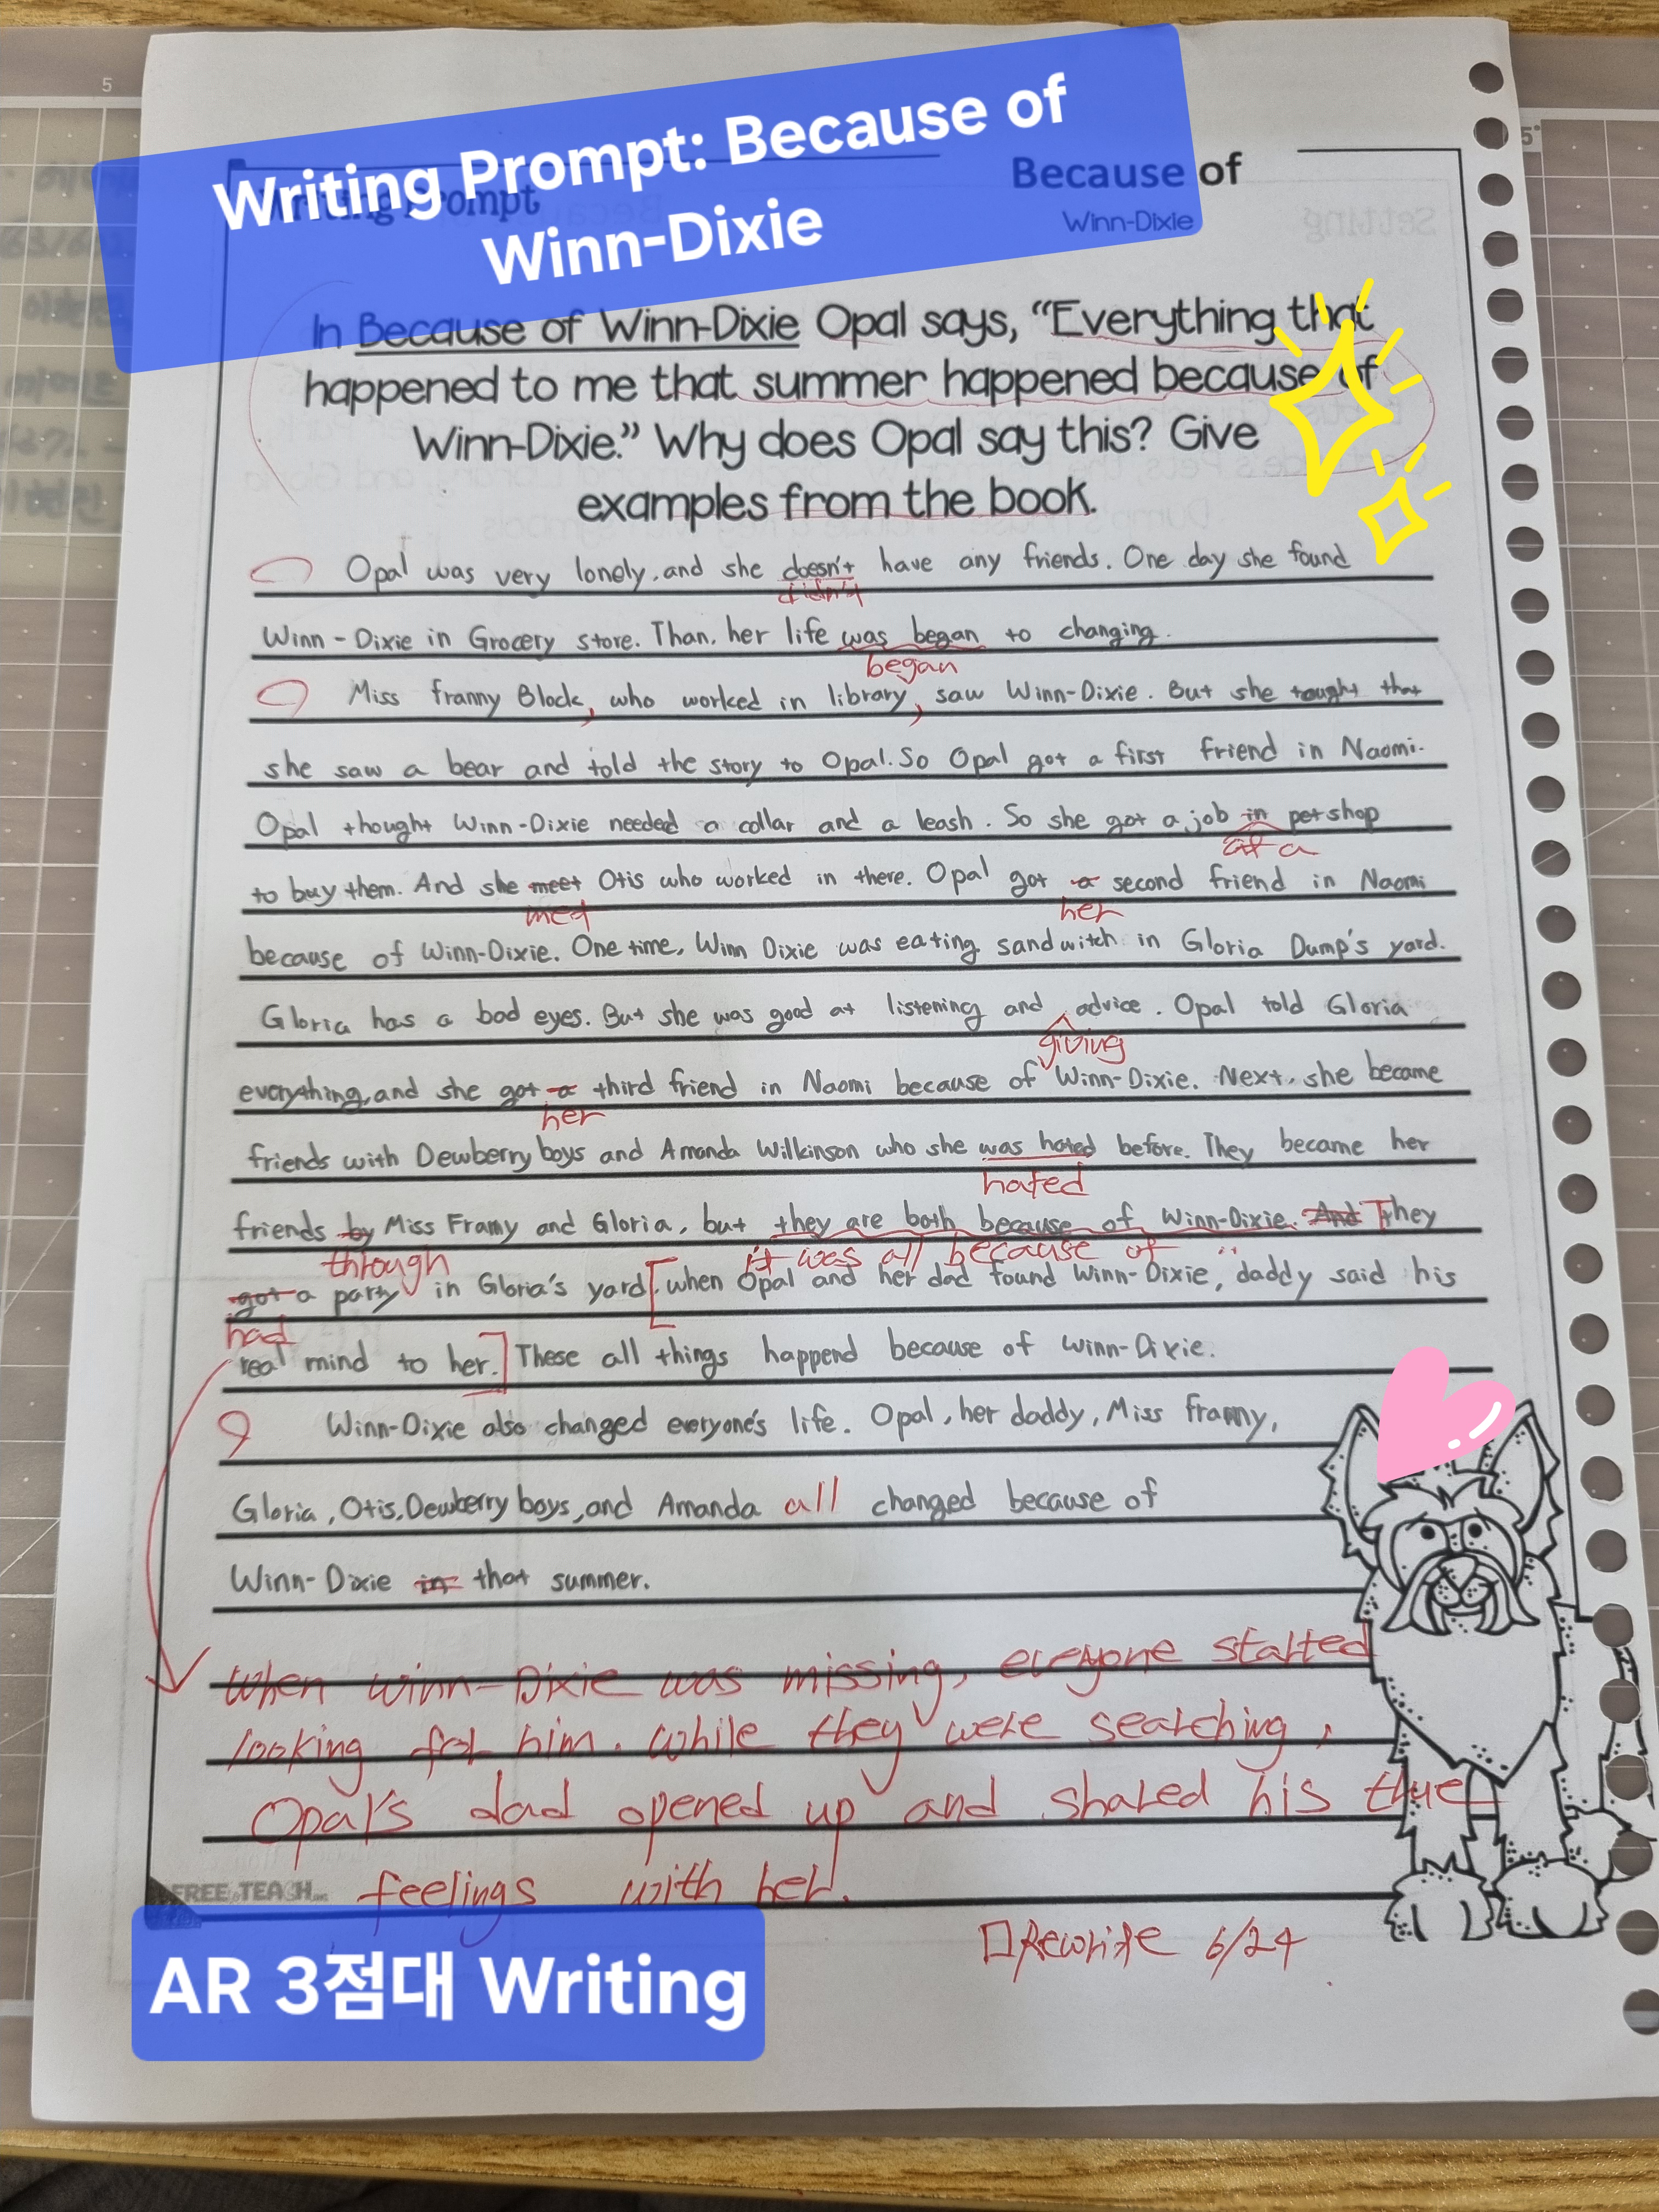 Writing Prompt: Because of
Winn-Dixie
Writing Prompt
Because of
Winn-Dixie
In Because of Winn-Dixie Opal says, “Everything that
happened to me that summer happened because of
Winn-Dixie.” Why does Opal say this? Give
examples from the book.
Opal was very lonely, and she doesn't have any friends. One day she found
didn't
Winn-Dixie in Grocery store. Than, her life was began to changing.
began
Miss Franny Block, who worked in library, saw Winn-Dixie. But she tought that
she saw a bear and told the story to Opal. So Opal got a first friend in Naomi.
Opal thought Winn-Dixie needed a collar and a leash. So she got a job in pet shop
at a
to buy them. And she meet Otis who worked in there. Opal got a second friend in Naomi
met her
because of Winn-Dixie. One time, Winn Dixie was eating sandwitch in Gloria Dump's yard.
Gloria has a bad eyes. But she was good at listening and advice. Opal told Gloria
giving
everything, and she got a third friend in Naomi because of Winn-Dixie. Next, she became
her
friends with Dewberry boys and Amanda Wilkinson who she was hated before. They became her
hated
friends by Miss Franny and Gloria, but they are both because of Winn-Dixie. And They
through it was all because of
got a party in Gloria's yard. when Opal and her dad found Winn-Dixie, daddy said his
had
real mind to her. These all things happend because of Winn-Dixie.
Winn-Dixie also changed everyone's life. Opal, her daddy, Miss Franny,
Gloria, Otis, Dewberry boys, and Amanda all changed because of
Winn-Dixie in that summer.
When Winn-Dixie was missing, everyone started
looking for him. While they were searching,
Opal's dad opened up and shared his true
feelings with her.
FREE TEACH
Rewrite 6/24
AR 3점대 Writing